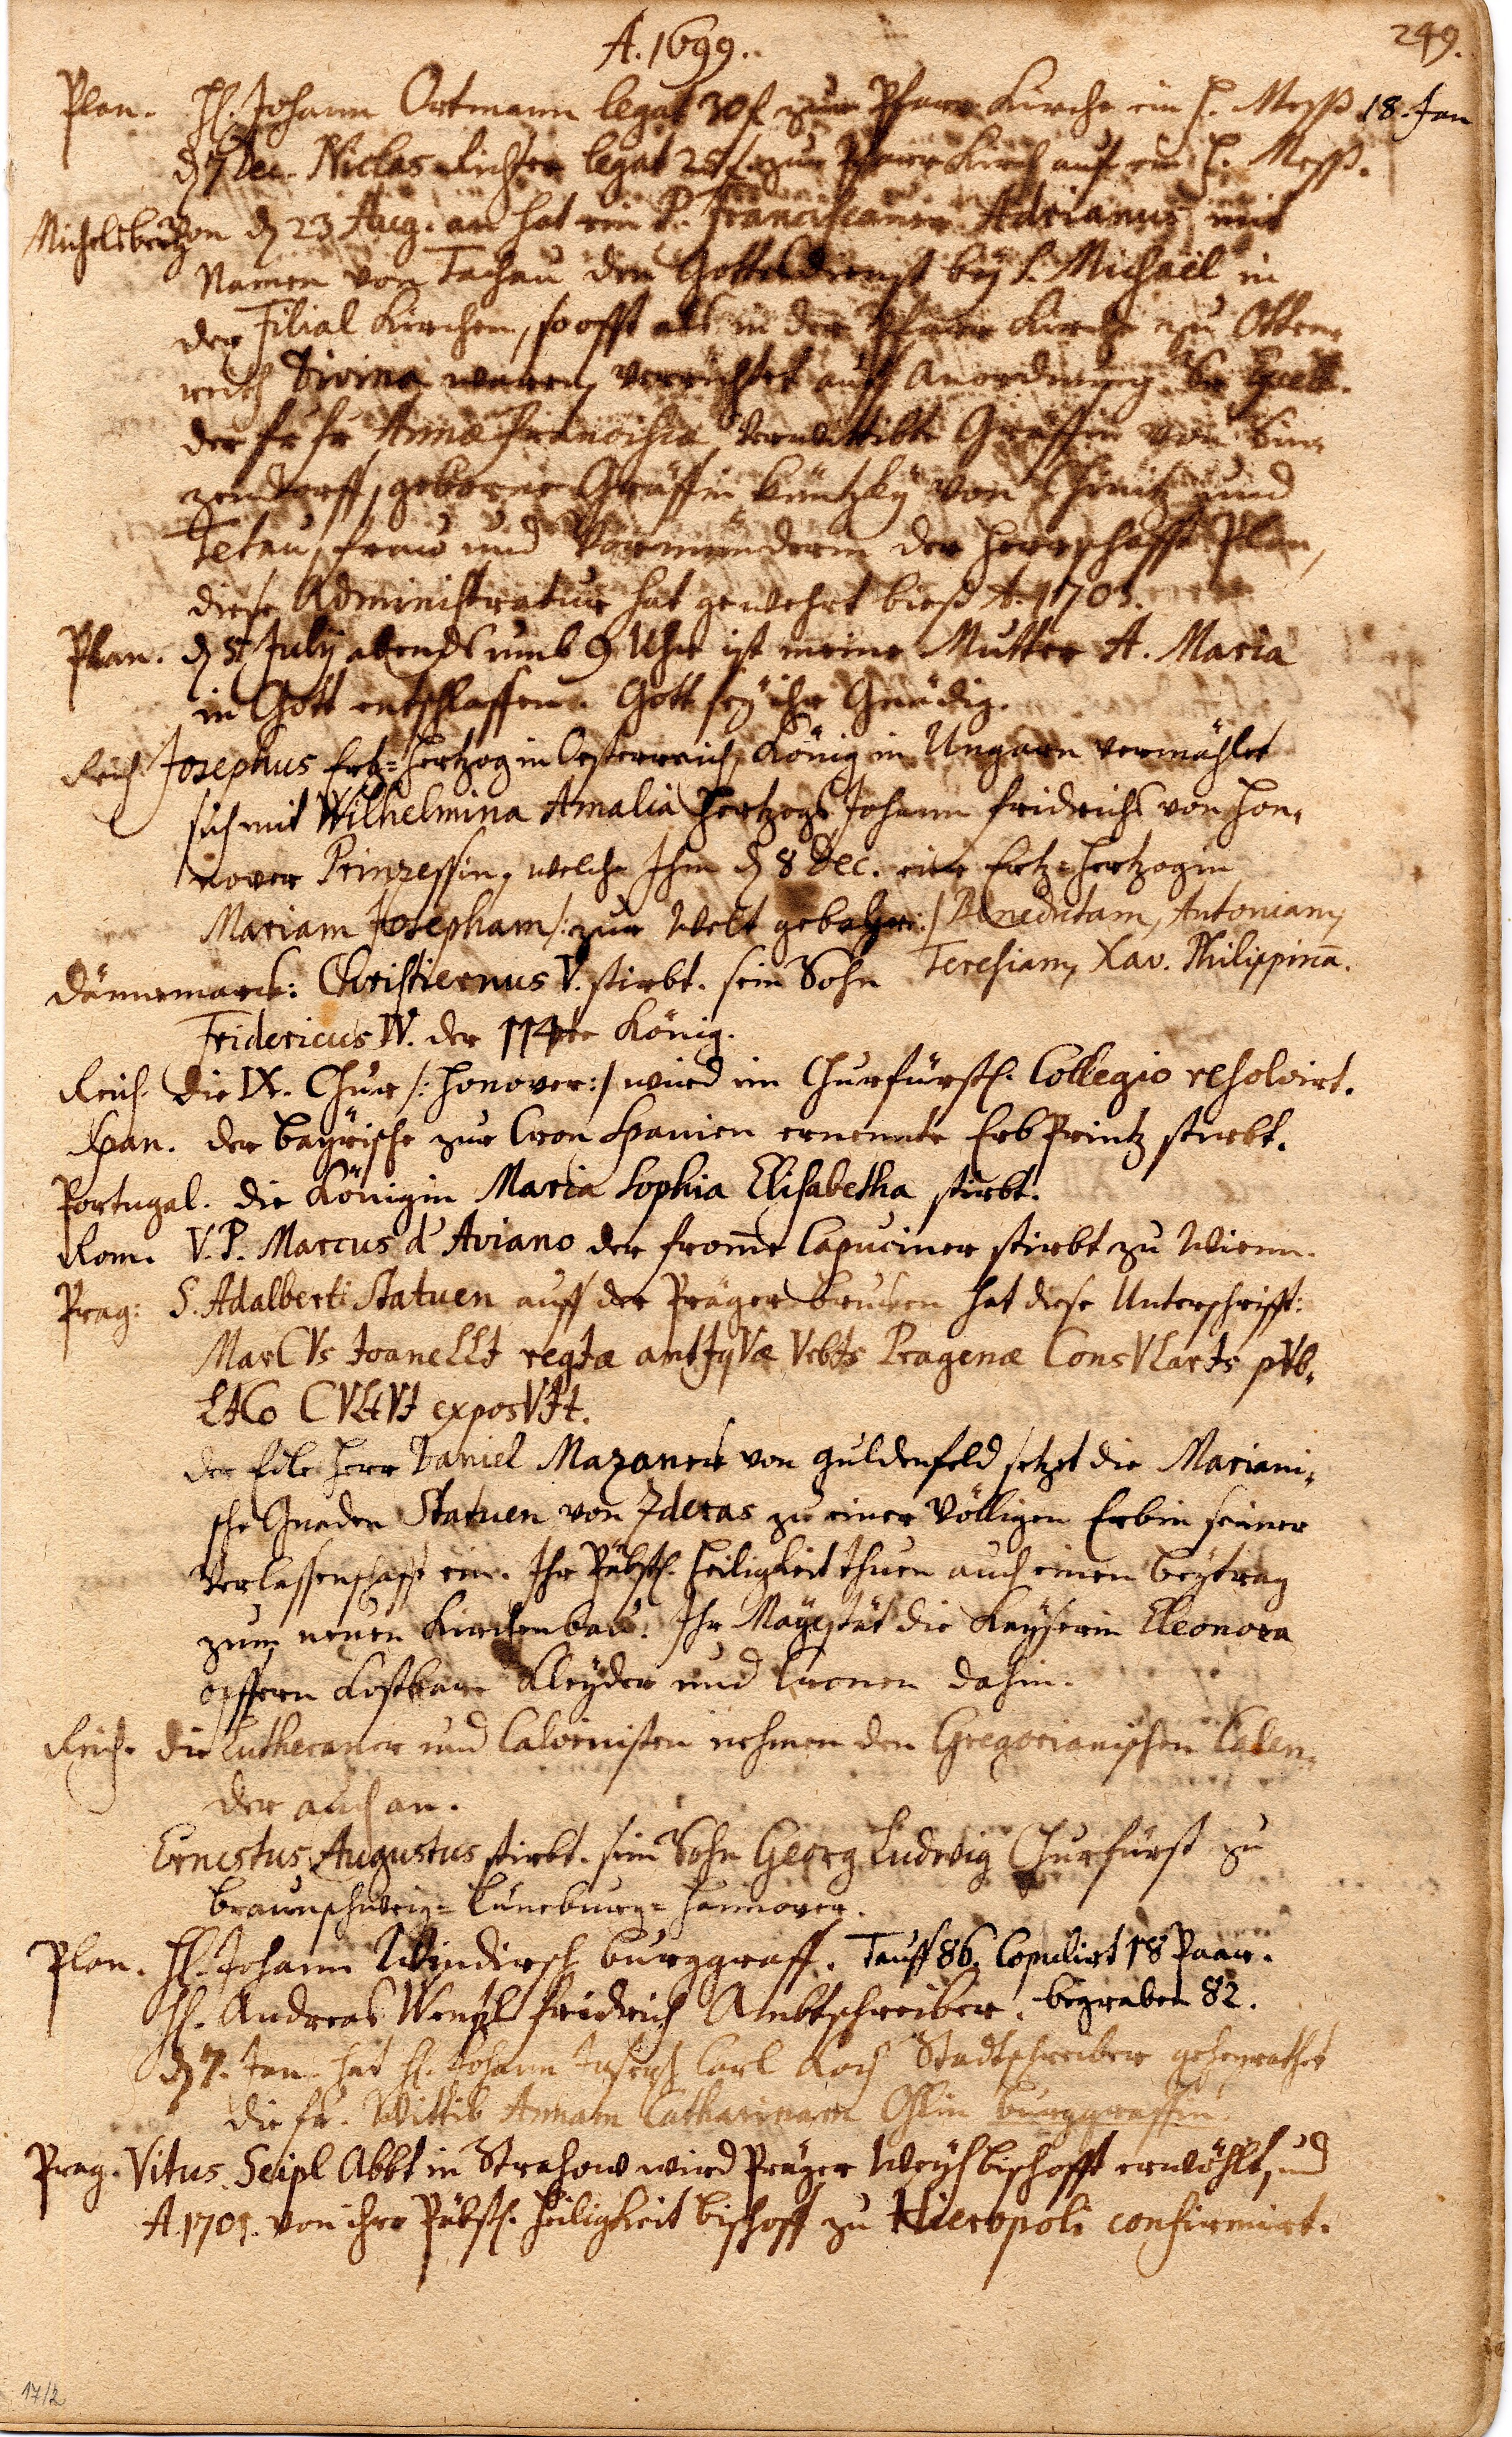 249.
A. 1699.
Plan. H. Johann Ortmann legat 30 f. zur Pfarr Kirche ein H. Mess 18. Jan
d. 7 Dec. Niclas Richter legat 25 f. zur Pfarr Kirch auf ein H. Mess.
Michelsberg Von d. 23 Aug. an hat ein P. Franciscaner Adrianus mit
Namen von Tachau den Gottesdienst bey S. Michaël in
der Filial Kirchen, so offt als in der Pfarr Kirche zu Otten-
reith Divina waren, verrichtet auff Anordnung
der fr fr Annæ Franciscæ verwittibte Gräffin von Sin-
zendorff, geborne Gräffin Küntzky von Chinitz und
Tetau, frau und Vormünderin der Herrschafft Plan,
diese Administratur hat gewehrt bieß A. 1701.
Plan. d. 5 July abends umb 9 Uhr ist meine Mutter A. Maria
in Gott entschlaffen. Gott sey ihr Gnädig.
Reich Josephus Ertz=Hertzog in Oesterreich, König in Ungarn vermählet
sich mit Wilhelmina Amalia Hertzogs Johann Fridrichs von Hon-
nover Prinzessin, welche Ihm d. 8 Dec. eine Ertz=Hertzogin
Mariam Josepham /: zur Welt gebahr :/ Benedictam, Antoniam,
Teresiam, Xav. Philippinã.
Dännemarck: Christiernus V. stirbt. sein Sohn
Fridericus IV. der 114te König.
Reich. die IX. Chur /: Honover :/ wird im Churfürstl. Collegio resolvirt.
Span. der bayrische zur Cron Spanien ernennte Erb Printz stirbt.
Portugal. die Königin Maria Sophia Elisabetha stirbt.
Rom. V. P. Marcus d' Aviano der from̃e Capuciner stirbt zu Wienn.
Prag: S. Adalberti Statuen auff der Präger brucken hat diese Unterschrifft:
MarCVs IoaneLLI regIæ antIqVæ VrbIs Pragenæ ConsVLarIs pVb-
LICo CVLtVI exposVIt.
der Edle Herr Daniel Mazanek von Guldenfeld setzet die Mariani-
sche Gnaden Statuen von Zderas zu einer völligen Erbin seiner
Verlassenschafft ein. Ihr Päbstl. Heiligkeit thuen auch einen beytrag
zum neuen Kirchenbau. Ihr Mayestät die Kayserin Eleonora
opffern kostbare Kleyder und Cronen dahin.
Reich. die Lutheraner und Calvinisten nehmen den Gregorianischen Calen-
der auch an.
Ernestus Augustus stirbt. sein Sohn Georg Ludwig Churfürst zu
braunschweig=Luneburg=Hannover.
Plan. H. Johann Windirsch burggraff. Tauff 86. Copulirt 18 Paar.
H. Andreas Wentzl Fridrich Ambtschreiber. begraben 82.
d. 7. Jan. hat H. Johann Joseph Carl Koch Stadtschreiber geheyrathet
die fr. Wittib Annam Catharinam burggraffin.
Prag. Vitus Seipl Abbt in Strahow wird Präger Weyhbischofft erwöhlt, und
A. 1701. von ihrer Päbstl. Heiligkeit bischoff zu Hieropoli confirmirt.
17/2